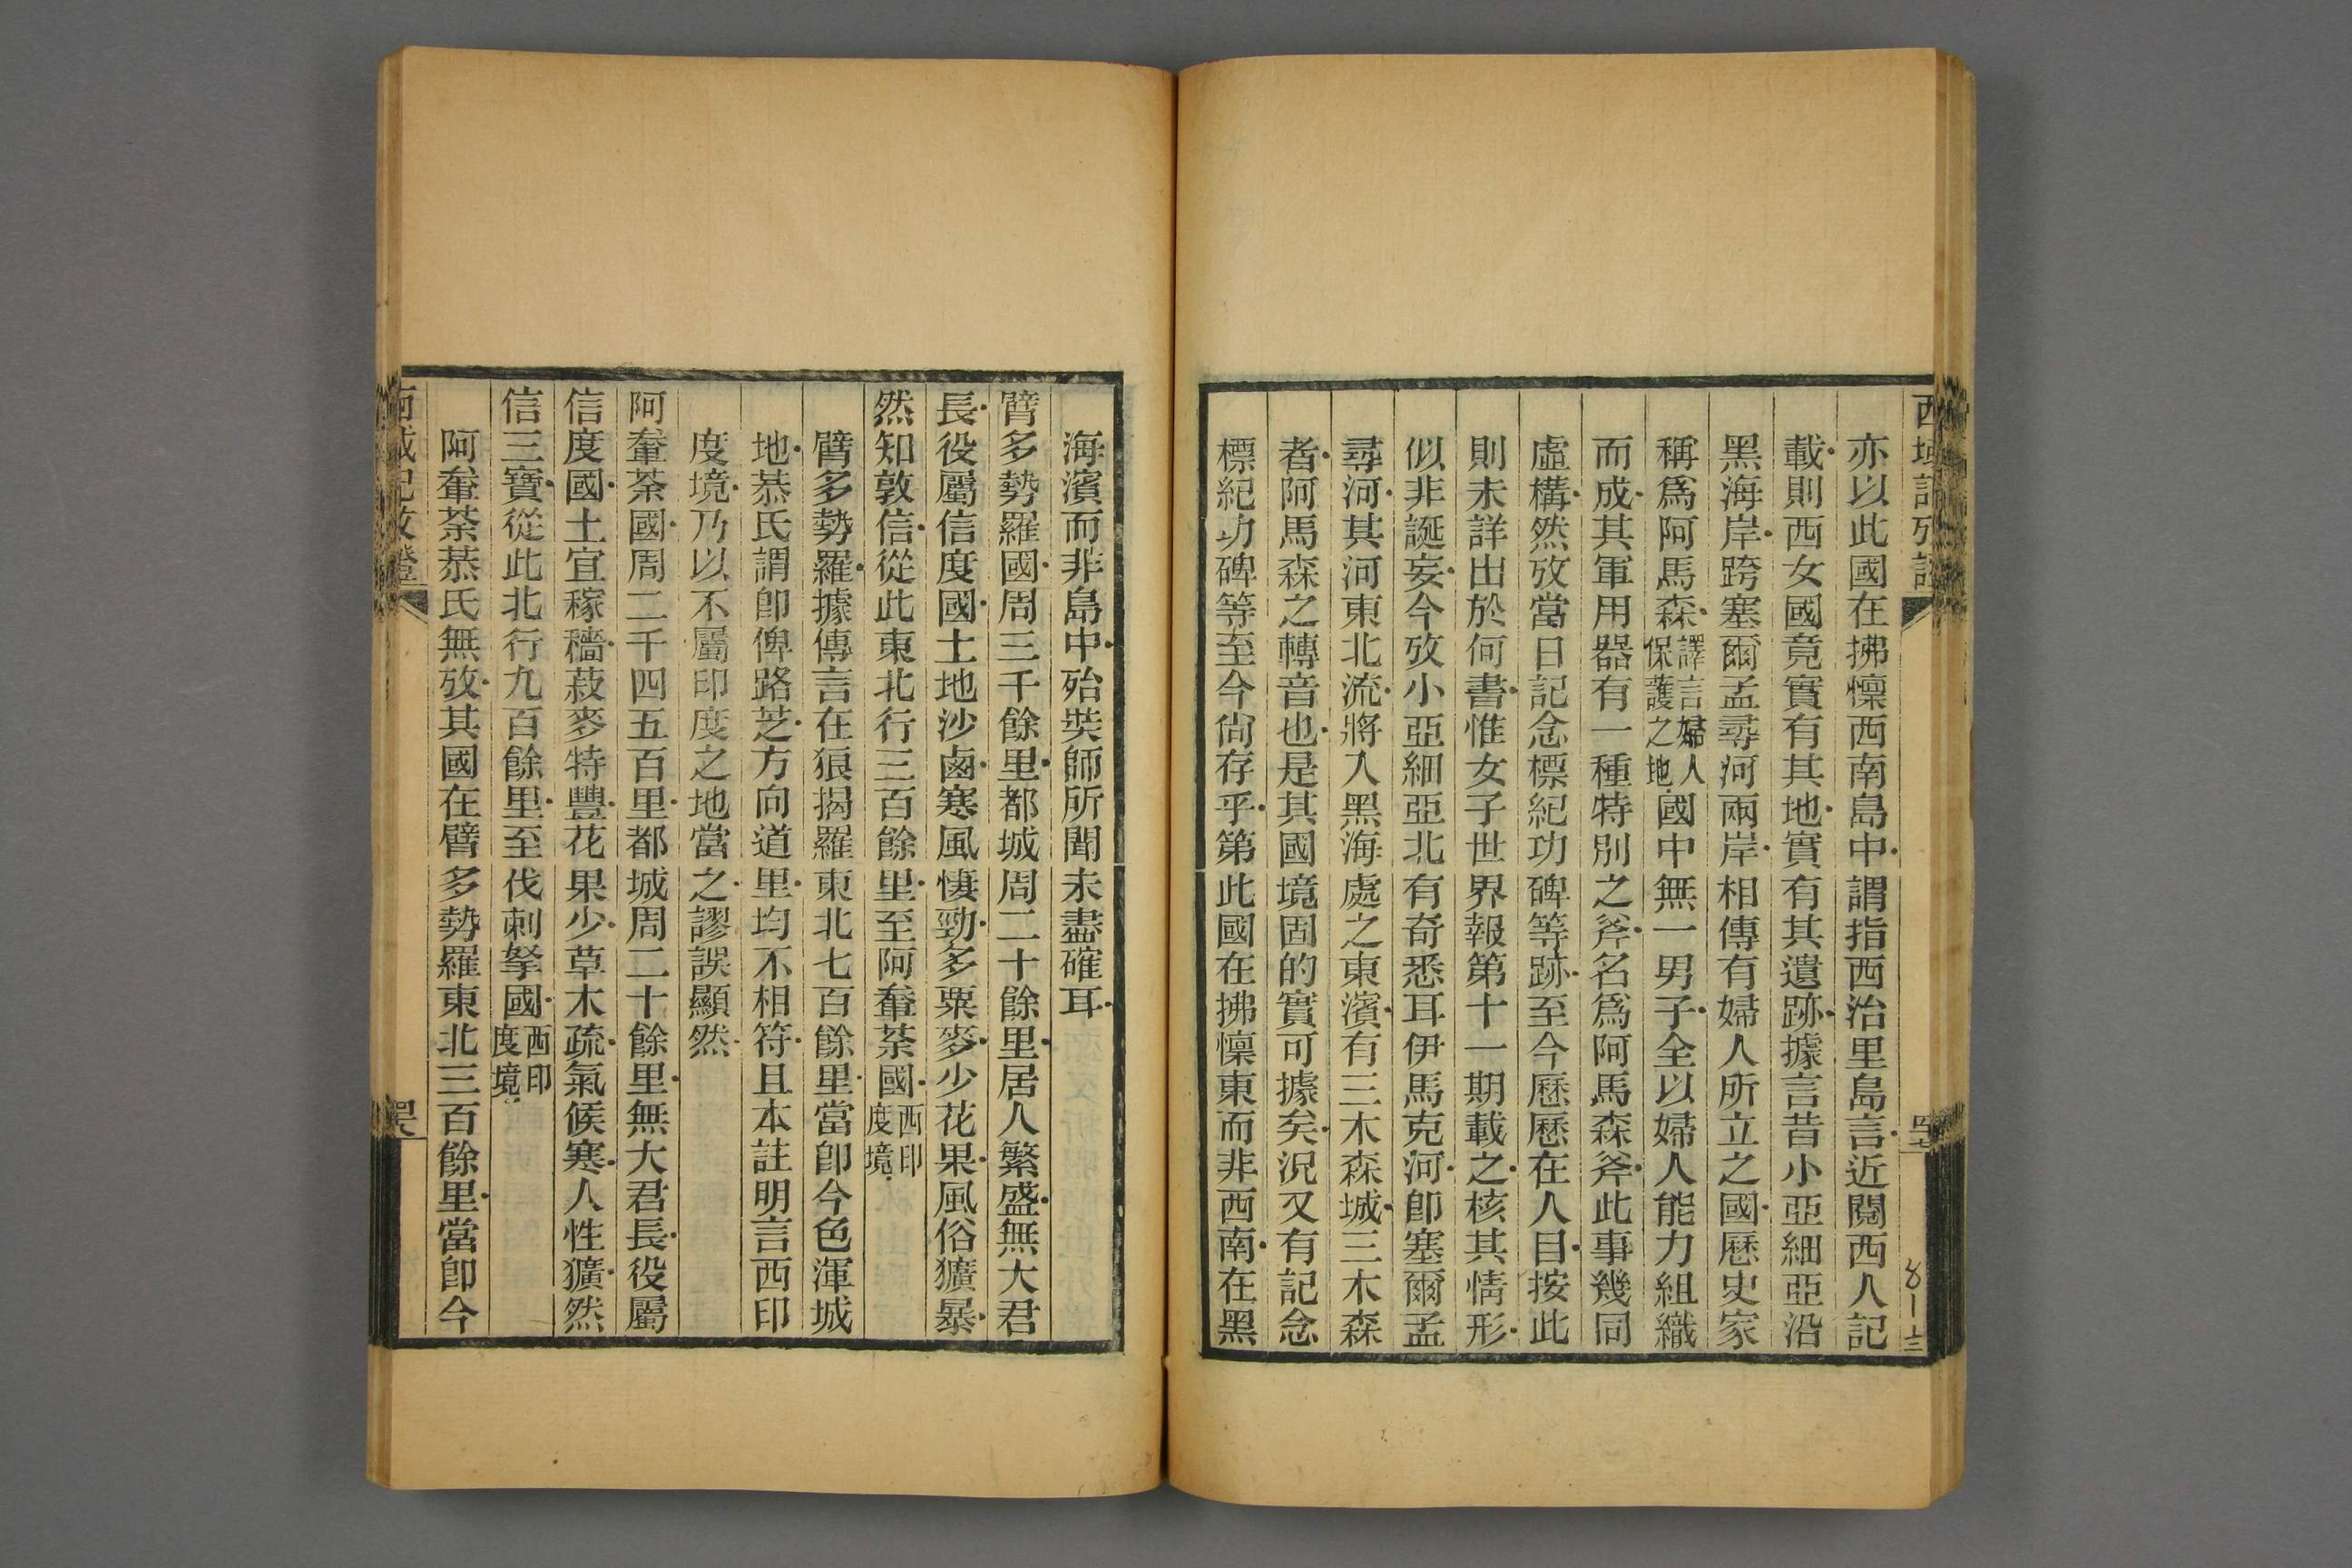 亦以此國在拂懍西南島中謂指西治里島言近閱西人記
載則西女國竟實有其地實有其遺跡據言昔小亞細亞沿
黑海岸跨塞爾孟尋河兩岸相傳有婦人所立之國歷史家
稱爲阿馬森譯言婦人保護之地國中無一男子全以婦人能力組織
而成其軍用器有一種特別之斧名爲阿馬森斧此事幾同
虛構然攷當日記念標紀功碑等跡至今歷歷在人目按此
則未詳出於何書惟女子世界報第十一期載之核其情形
似非誕妄今攷小亞細亞北有奇悉耳伊馬克河卽塞爾孟
尋河其河東北流將入黑海處之東濱有三木森城三木森
者阿馬森之轉音也是其國境固的實可據矣況又有記念
標紀功碑等至今尙存乎第此國在拂懍東而非西南在黑
海濱而非島中殆奘師所聞未盡確耳
臂多勢羅國周三千餘里都城周二十餘里居人繁盛無大君
長役屬信度國土地沙鹵寒風悽勁多粟麥少花果風俗獷暴
然知敦信從此東北行三百餘里至阿軬荼國西印度境
臂多勢羅據傳言在狼揭羅東北七百餘里當卽今色渾城
地恭氏謂卽俾路芝方向道里均不相符且本註明言西印
度境乃以不屬印度之地當之謬誤顯然
阿軬荼國周二千四五百里都城周二十餘里無大君長役屬
信度國土宜稼穡菽麥特豐花果少草木疏氣候寒人性獷然
信三寶從此北行九百餘里至伐剌拏國西印度境
阿軬荼恭氏無攷其國在臂多勢羅東北三百餘里當卽今
西域記攷證